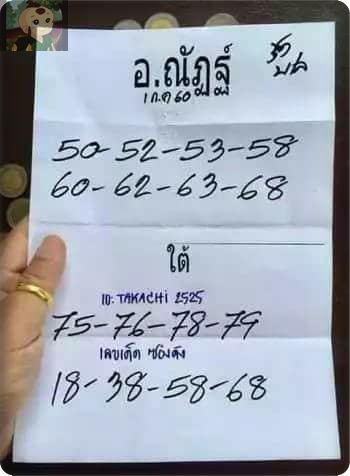 อ.ณัฏฐ์
1 ก.ค 60
บน
50-52-53-58
60-62-63-68
ใต้
ID: TAKACHI 2525
75-76-78-79
เลขเด็ด ซองดัง
18-38-58-68